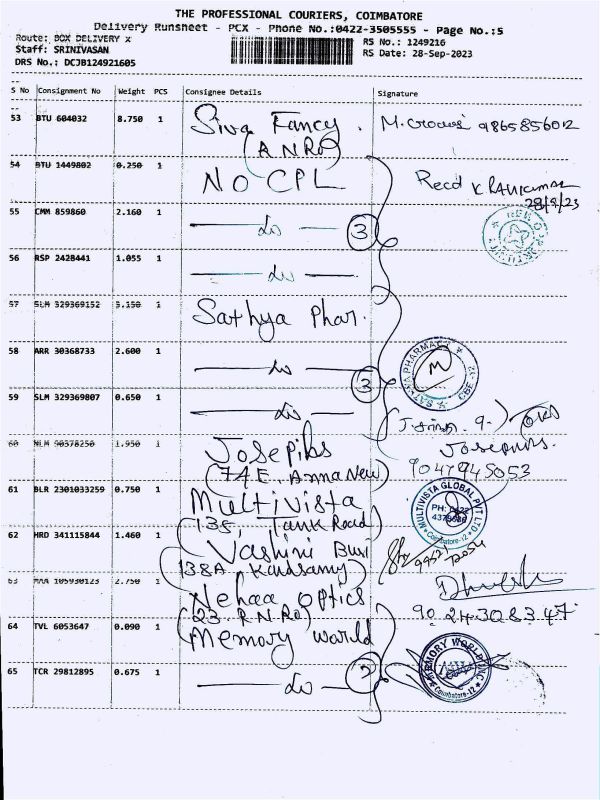 THE PROFESSIONAL COURIERS, COIMBATORE
Delivery Runsheet - PCX - Phone No.:0422-3505555 - Page No.:5
Route: BOX DELIVERY x
RS No.: 1249216
Staff: SRINIVASAN
RS Date: 28-Sep-2023
DRS No.: DCJB124921605
S No Consignment No Weight PCS Consignee Details Signature
53 BTU 604032 8.750 1 Siva Fancy. 9865856012
(A N Ro)
54 BTU 1449802 0.250 1 NO CPL Recd K RAVIKUMAR
28/9/23
55 CMM 859860 2.160 1 3
56 RSP 2428441 1.055 1
57 SLM 329369152 5.150 1 Sathya Phar.
58 ARR 30368733 2.600 1 SATHYA PHARMACY CBE-12
59 SLM 329369807 0.650 1 3
60 NLM 90378250 1.950 1 Josephs
(74 E. Anna New)
61 BLR 2301033259 0.750 1 Multivista MULTIVISTA GLOBAL PVT LTD
(135, Tank Road) Coimbatore-12
62 HRD 341115844 1.460 1 Vashini Busi
138A Kandsamy)
63 MAA 105930123 2.750 1 Nehaa optics
(23. R.N.Ro)
64 TVL 6053647 0.090 1 Memory world MEMORY WORLD INC
Coimbatore-12
65 TCR 29812895 0.675 1 2